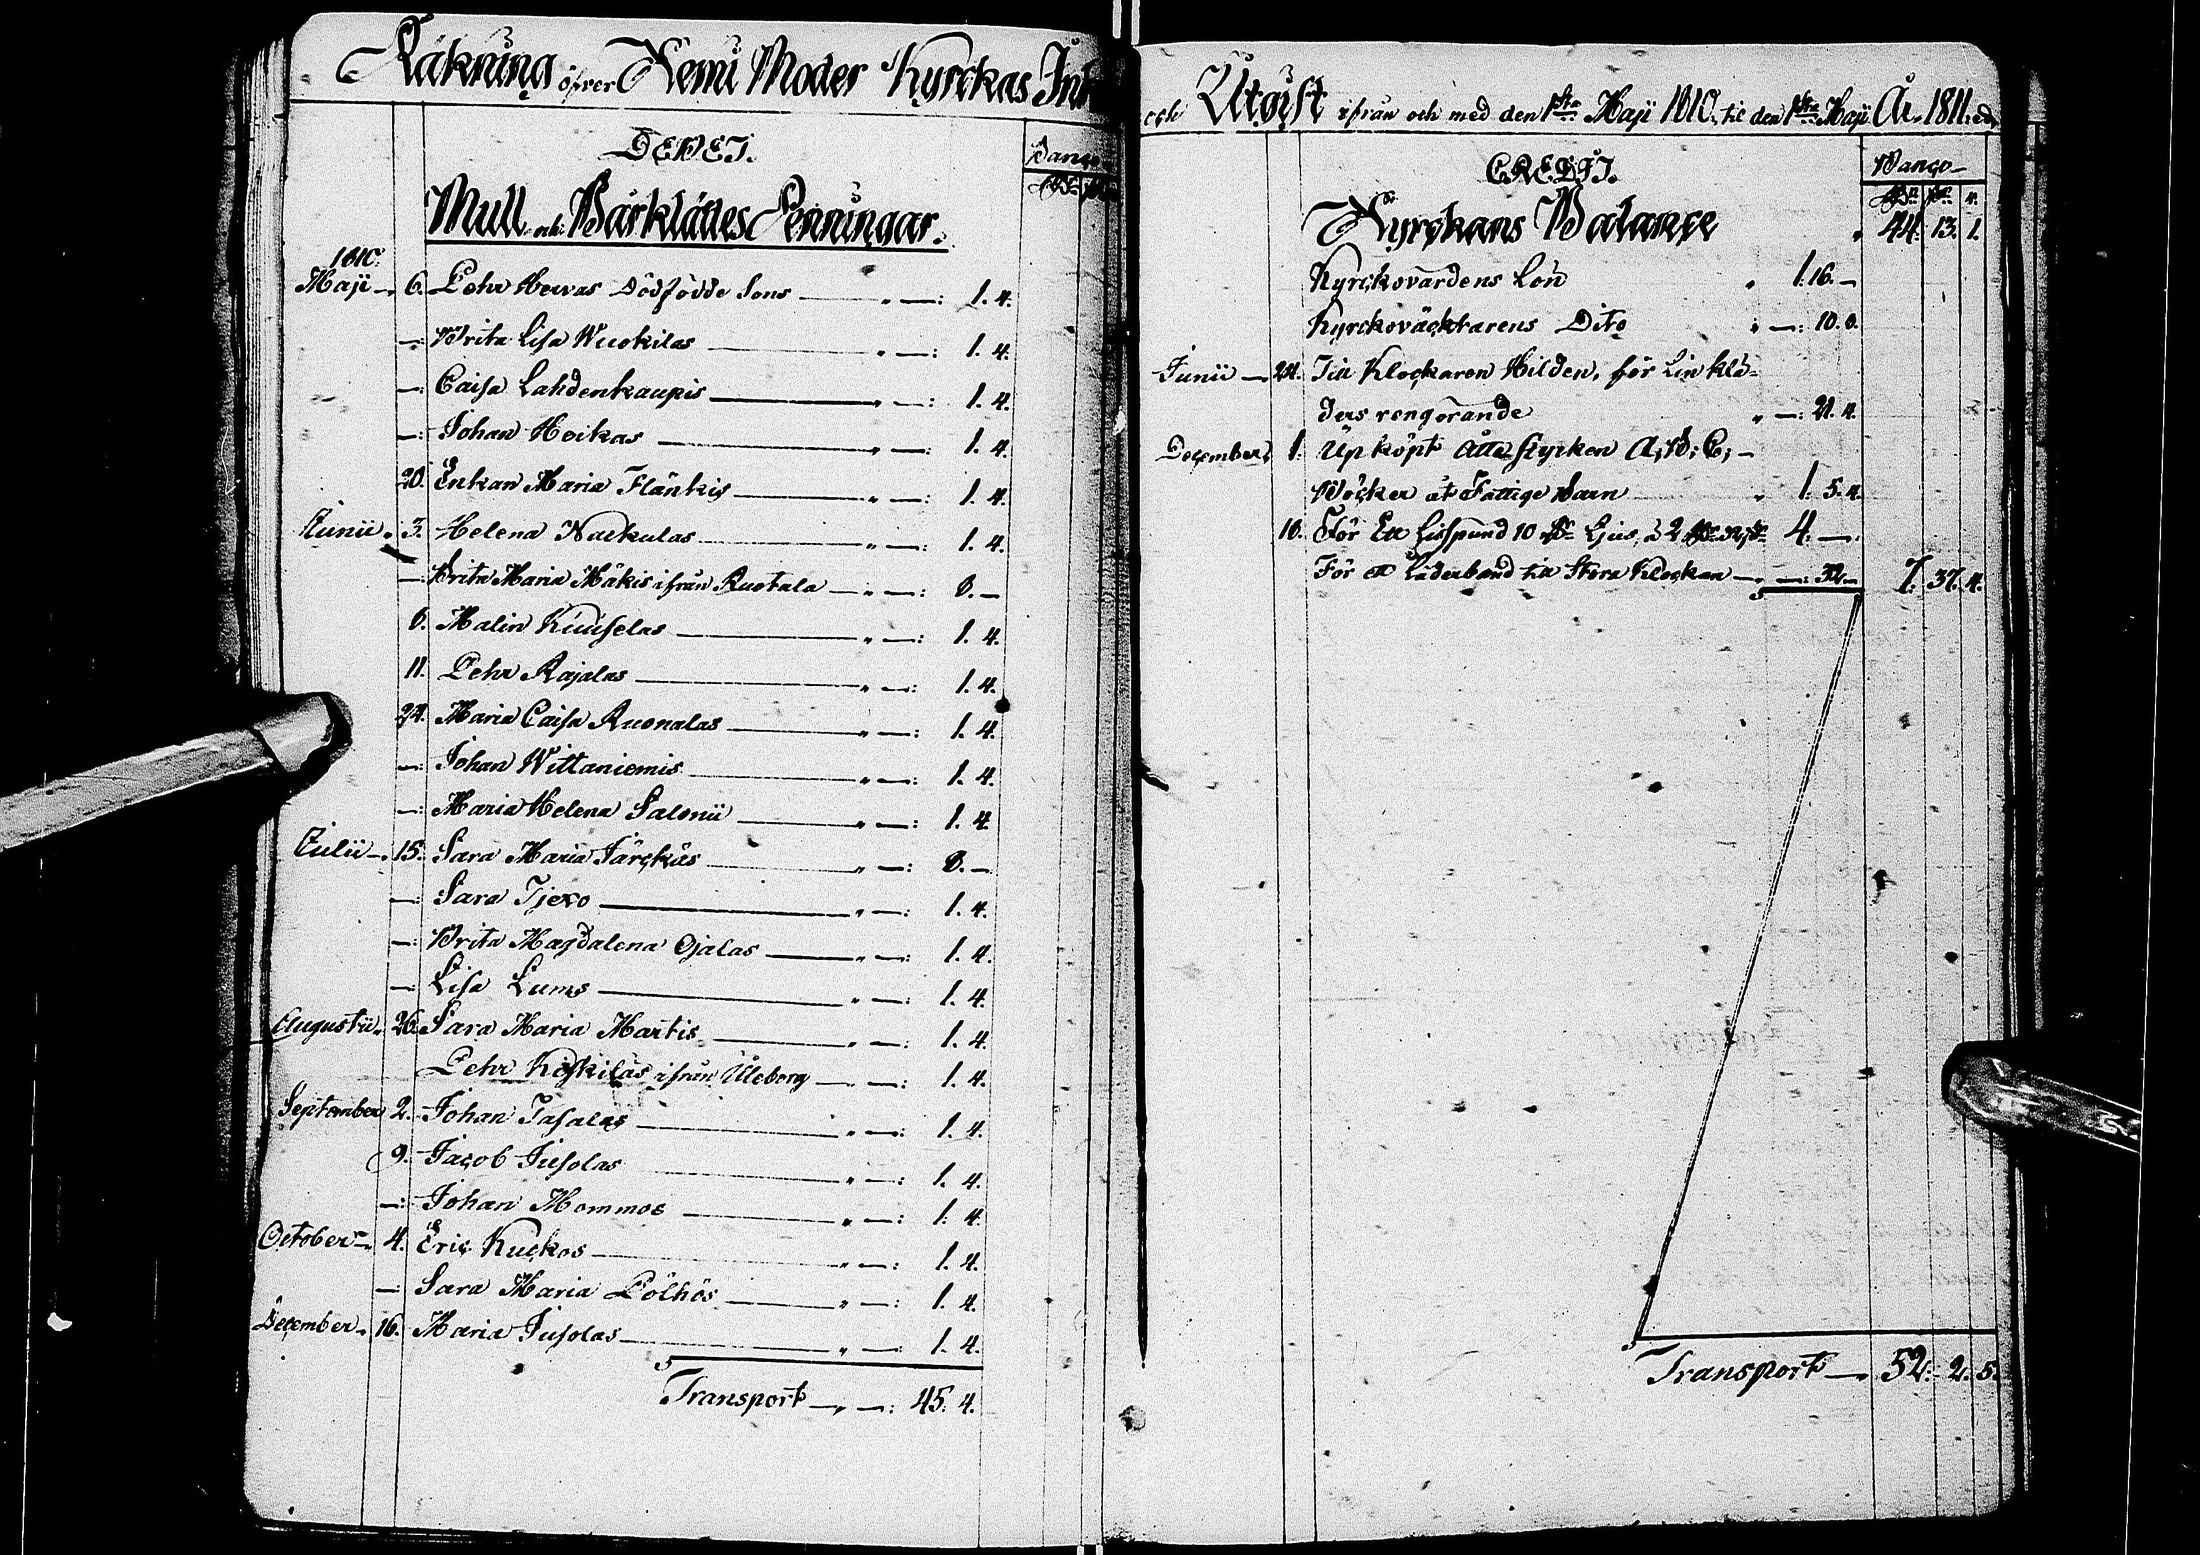 Räkning öfver Kemi Moder Kyrckas Ink
DEBET.
Banco
Mull och Bårklädes Penningar.
1810.
Maji 6. Pehr Hervas Dödfödde Sons „ —: 1. 4.
—: Brita Lisa Wuokilas „ —: 1. 4.
—: Caisa Lahdenkaupis „ —: 1. 4.
—: Johan Hoikas „ —: 1. 4.
20. Enkan Maria Flänkis „ —: 1. 4.
Junii 3. Helena Narkulas „ —: 1. 4.
—: Brita Maria Mäkis ifrån Ruotala „ —: 8. —
6. Malin Kuuselas „ —: 1. 4.
11. Pehr Rajalas „ —: 1. 4.
24. Maria Caisa Ruonalas „ —: 1. 4.
—: Johan Wittaniemis „ —: 1. 4.
—: Maria Helena Salonii „ —: 1. 4.
Julii 15. Sara Maria Järckäs „ —: 8. —
—: Sara Tjexo „ —: 1. 4.
—: Brita Magdalena Ojalas „ —: 1. 4.
—: Lisa Lums „ —: 1. 4.
Augustii 26. Sara Maria Martis „ —: 1. 4.
Pehr Koskilas ifrån Uleborg —: 1. 4.
September 2. Johan Tasalas „ —: 1. 4.
9. Jacob Jusolas „ —: 1. 4.
—: Johan Mommos „ —: 1. 4.
October 4. Eric Kuckos „ —: 1. 4.
—: Sara Maria Pölhös „ —: 1. 4.
December 16. Maria Jusolas „ —: 1. 4.
Transport „ —: 45. 4.
och Utgift ifrån och med den 1sta Maji 1810. til den 1sta Maji År 1811.
CREDIT.
Banco
Kyrckans Balance „ 44. 13. 1.
Kyrckovärdens Lön „ 1. 16. —
Kyrckoväcktarens Dito „ —: 10. 8.
Junii 24. Till Klockaren Hilden, för Linklä-
ders rengörande „ —: 21. 4.
December 1. Upköpt Åtta stycken A, B, C, —
Böcker åt Fattige Barn „ 1. 5. 4.
16. För Ett Lispund 10 Ljus, à 2 32 4. —
För ett Läderband till Stora Klockan —: 32. — 7. 37. 4.
Transport 52. 2. 5.